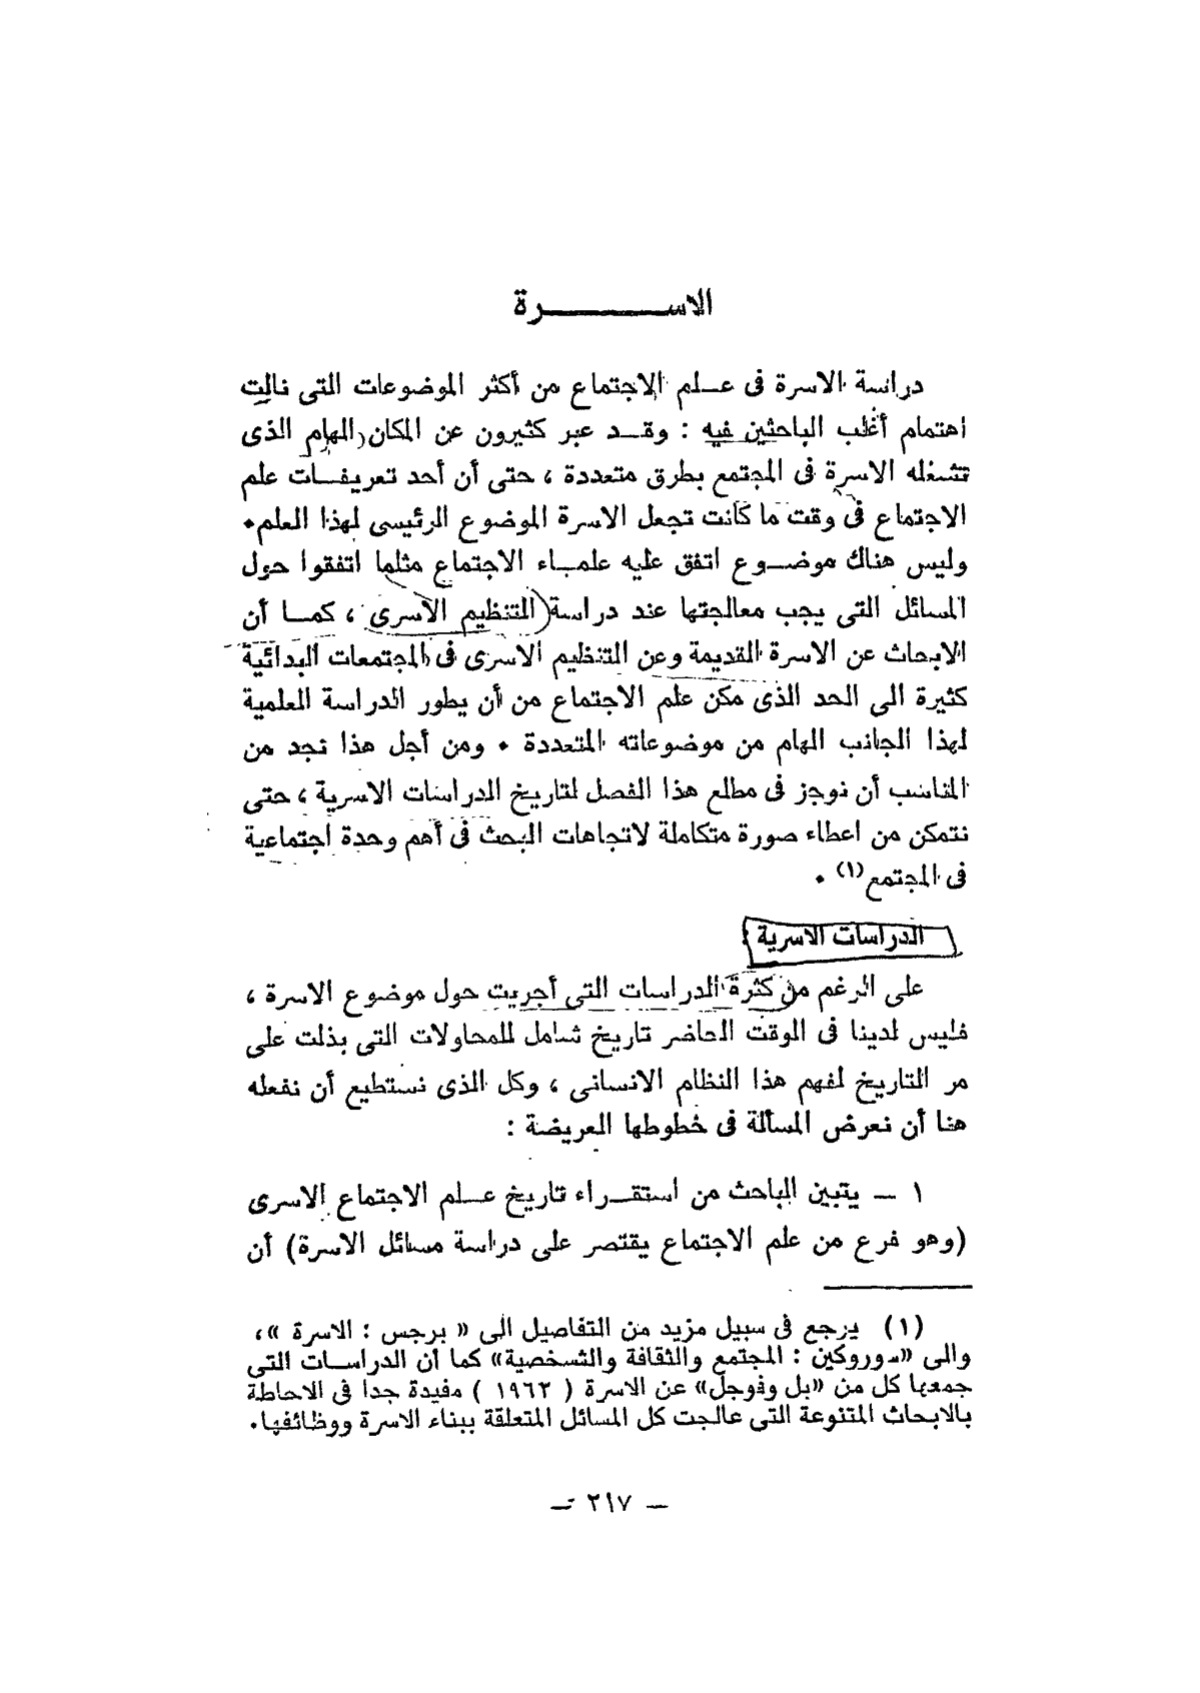 الاســـــــرة
دراسة الاسرة فى عـلم الاجتماع من أكثر الموضوعات التى نالت
اهتمام أغلب الباحثين فيه : وقـد عبر كثيرون عن المكان الهام الذى
تشغله الاسرة فى المجتمع بطرق متعددة ، حتى أن أحد تعريفـات علم
الاجتماع فى وقت ما كانت تجعل الاسرة الموضوع الرئيسى لهذا العلم.
وليس هناك موضـوع اتفق عليه علمـاء الاجتماع مثلما اتفقوا حول
المسائل التى يجب معالجتها عند دراسة التنظيم الاسرى ، كمـا أن
الابحاث عن الاسرة القديمة وعن التنظيم الاسرى فى المجتمعات البدائية
كثيرة الى الحد الذى مكن علم الاجتماع من أن يطور الدراسة العلمية
لهذا الجانب الهام من موضوعاته المتعددة . ومن أجل هذا نجد من
المناسب أن نوجز فى مطلع هذا الفصل لتاريخ الدراسات الاسرية ، حتى
نتمكن من اعطاء صورة متكاملة لاتجاهات البحث فى أهم وحدة اجتماعية
فى المجتمع(١) .
الدراسات الاسرية :
على الرغم من كثرة الدراسات التى أجريت حول موضوع الاسرة ،
فليس لدينا فى الوقت الحاضر تاريخ شامل للمحاولات التى بذلت على
مر التاريخ لفهم هذا النظام الانسانى ، وكل الذى نستطيع أن نفعله
هنا أن نعرض المسألة فى خطوطها العريضة :
١ — يتبين الباحث من استقـراء تاريخ عـلم الاجتماع الاسرى
(وهو فرع من علم الاجتماع يقتصر على دراسة مسائل الاسرة) أن
(١) يرجع فى سبيل مزيد من التفاصيل الى « برجس : الاسرة »،
والى «سوروكين : المجتمع والثقافة والشخصية» كما أن الدراسـات التى
جمعها كل من «بل وفوجل» عن الاسرة ( ١٩٦٣ ) مفيدة جدا فى الاحاطة
بالابحاث المتنوعة التى عالجت كل المسائل المتعلقة ببناء الاسرة ووظائفها.
— ٢١٧ —